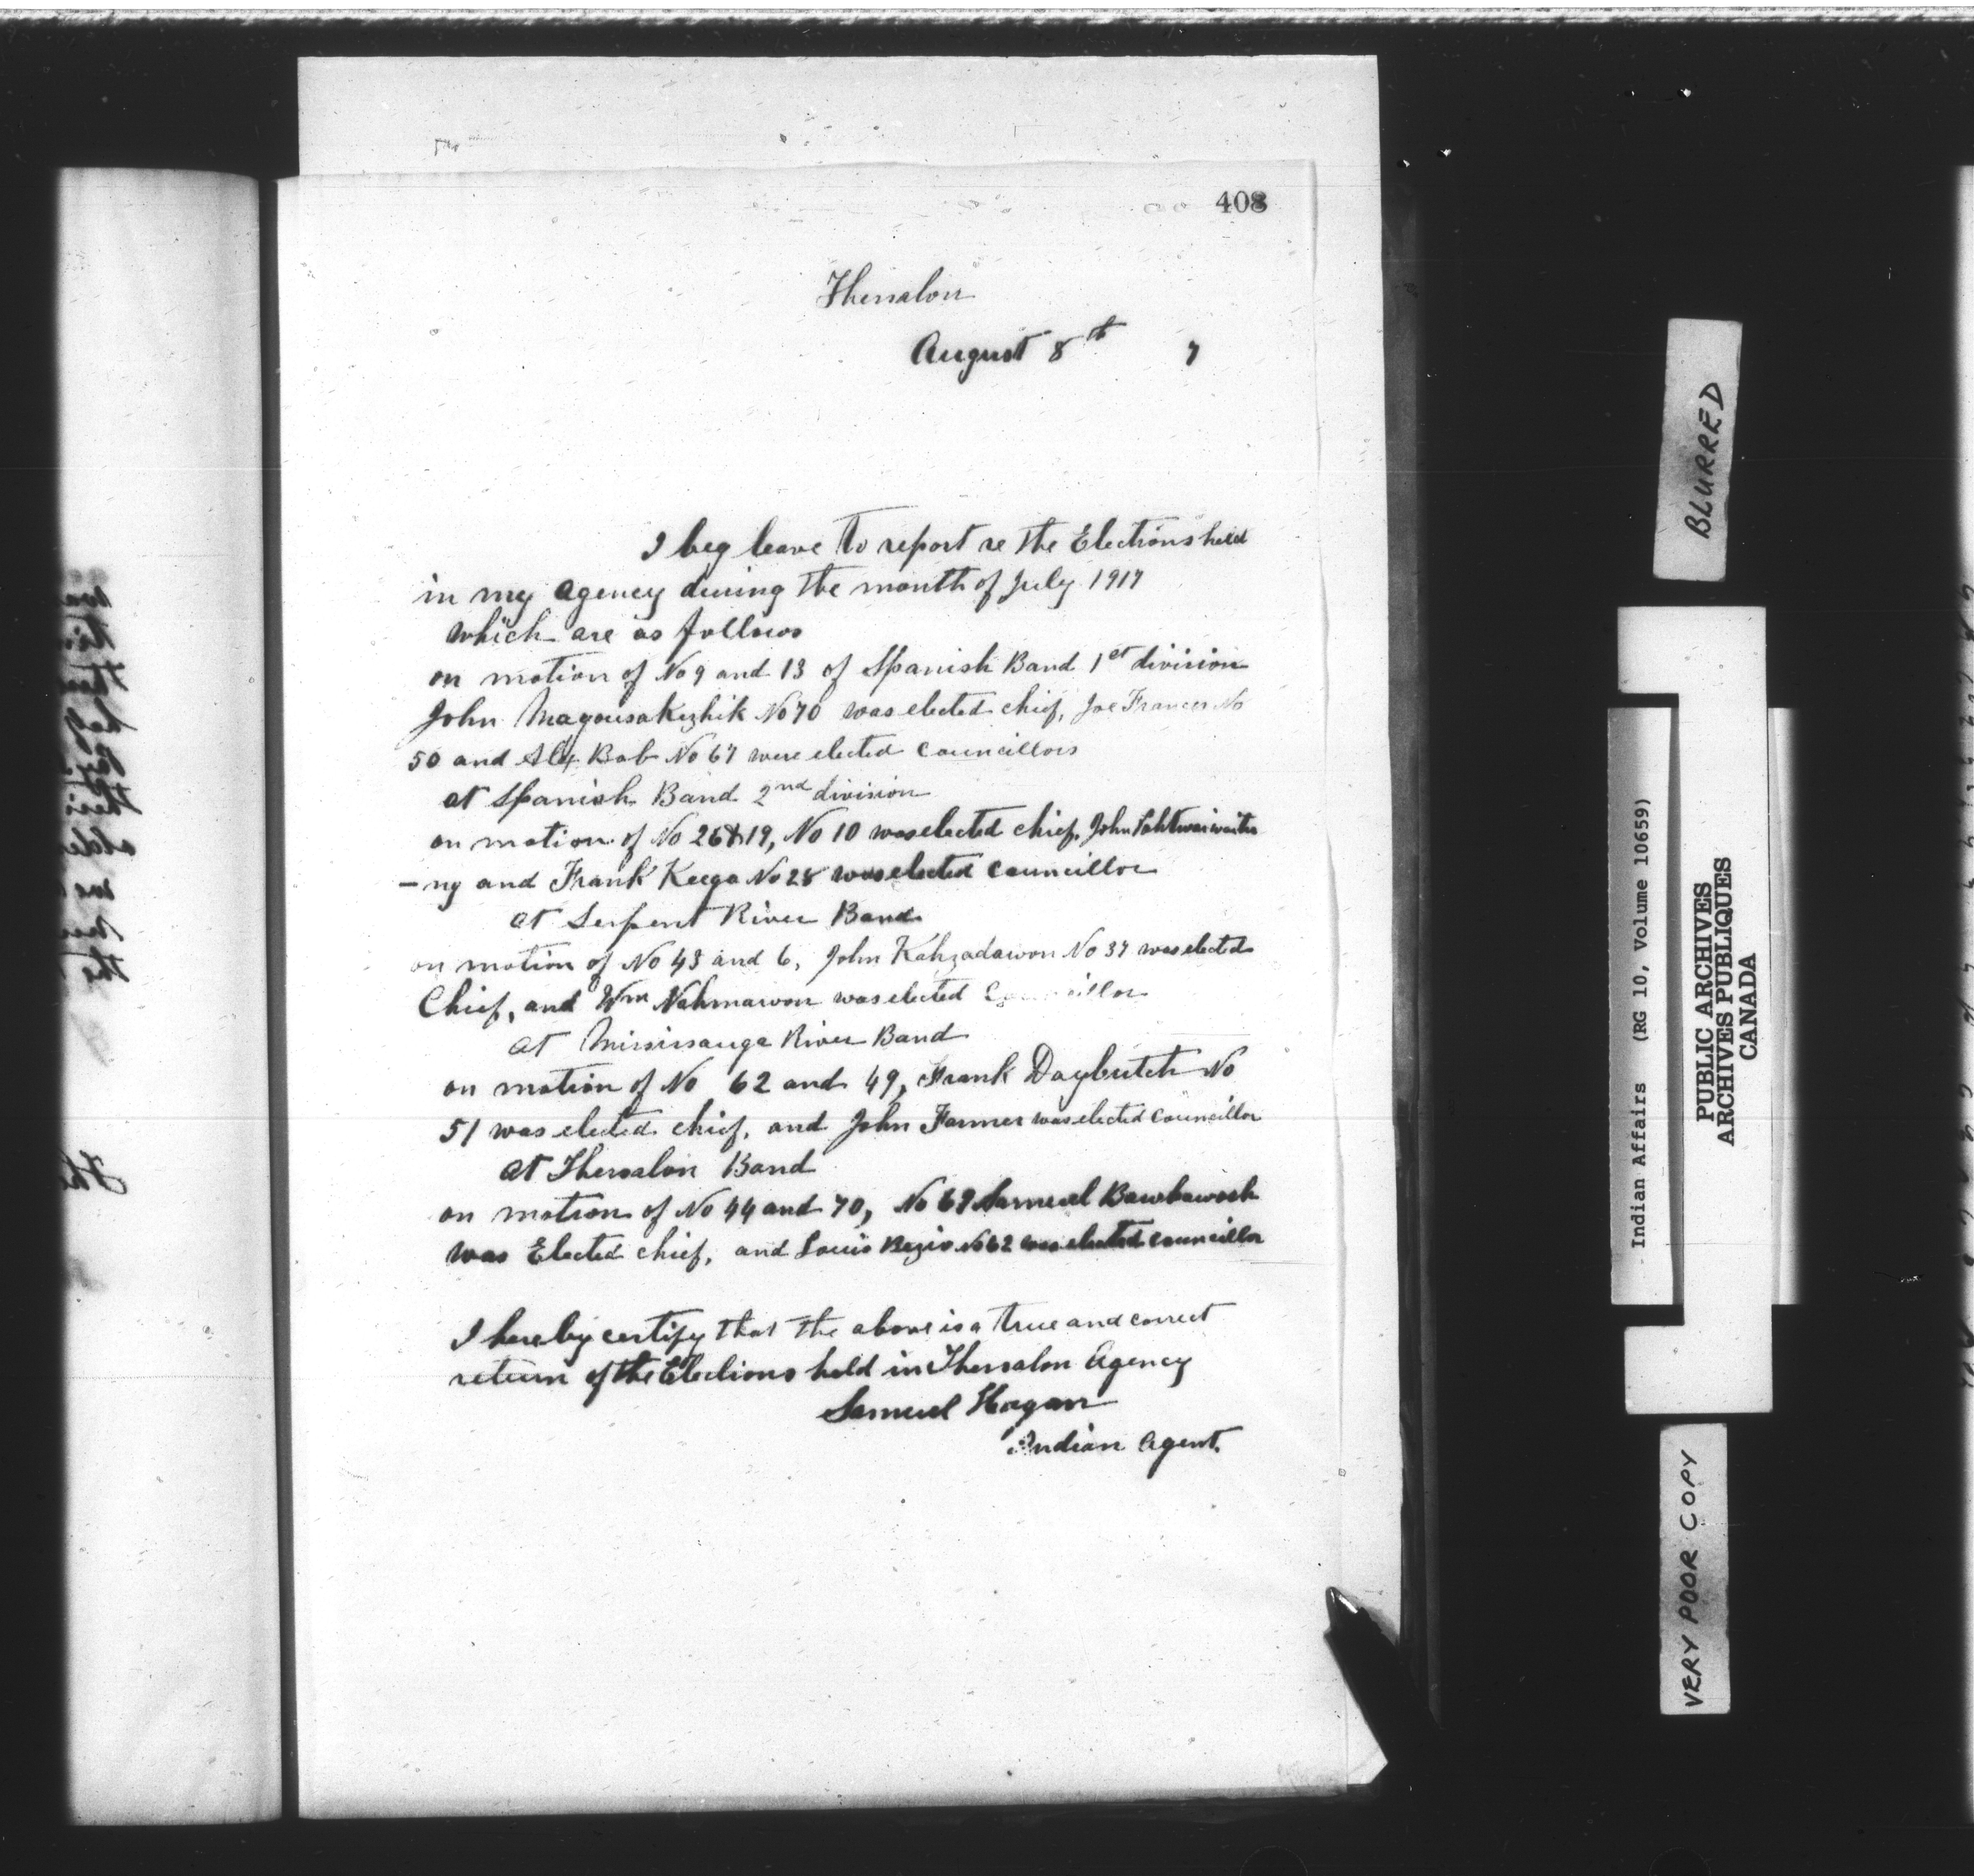 408
Thessalon
August 8th 7
I beg leave to report re the Elections held
in my agency during the month of July 1917
which are as follows
on motion of No 9 and 13 of Spanish Band 1st division
John Magousakezhik No 70 was elected chief, Joe Frances No
50 and Alex Bob No 67 were elected councillors
at Spanish Band 2nd division
on motion of No 26 & 19, No 10 was elected chief, John
-ng and Frank Keega No 28 was elected councillor
at Serpent River Band
on motion of No 43 and 6, John Kahzadawon No 37 was elected
Chief, and Wm Nahmawon was elected Councillor
at Mississauga River Band
on motion of No 62 and 49, Frank Daybutch No
51 was elected chief, and John Farmer was elected councillor
at Thessalon Band
on motion of No 44 and 70, No Samuel Bawbawosh
was Elected chief, and Louis No 62 was elected councillor
I hereby certify that the above is a true and correct
return of the Elections held in Thessalon Agency
Samuel Hagan
Indian Agent.
BLURRED
Indian Affairs (RG 10, Volume 10659)
PUBLIC ARCHIVES
ARCHIVES PUBLIQUES
CANADA
VERY POOR COPY